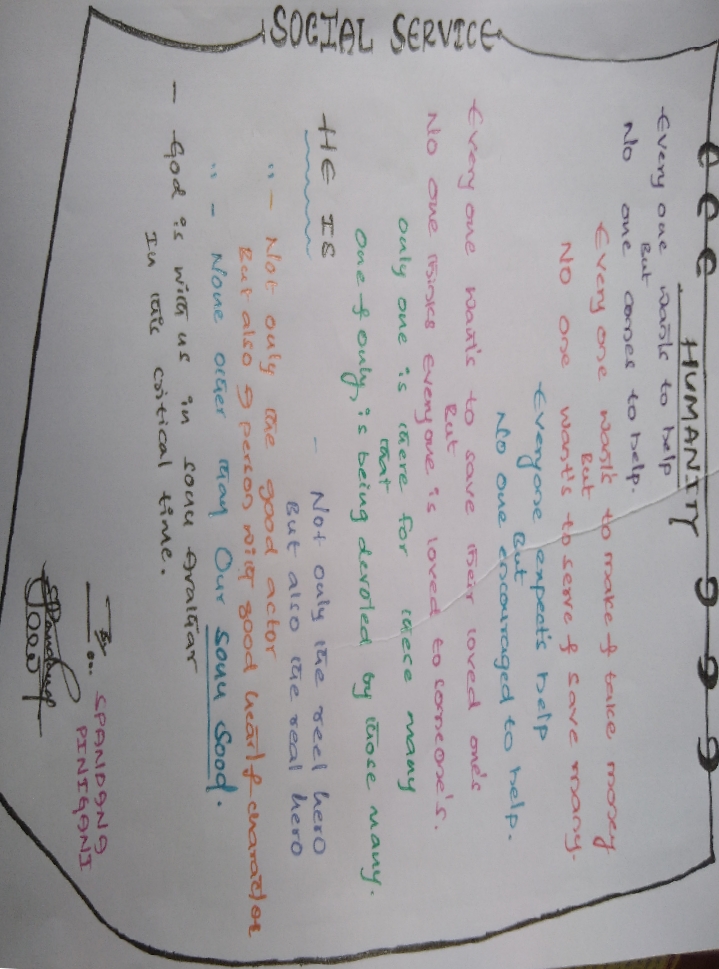 HUMANITY
- Every one wants to help
But
No one comes to help.
- Every one wants to make & take money
But
No one want's to serve & save many.
- Everyone expect's help
But
No one encouraged to help.
- Every one want's to save their loved one's
But
No one thinks everyone is loved to someone's.
only one is there for these many
that
one & only, is being devoted by those many.
HE IS
- Not only the reel hero
But also the real hero
" - Not only the good actor
But also a person with good heart & character
" - None other than Our Sonu Sood.
- God is with us in Sonu Avathar
In this critical time.
SOCIAL SERVICE
By
SPANDANA
PINIGANI